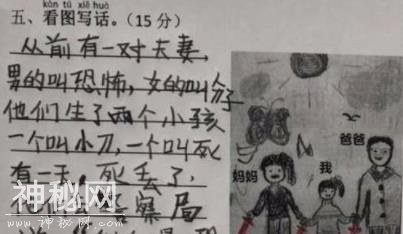 kàn tú xiě huà
五、看图写话。(15分)
从前有一对夫妻，
男的叫恐怖，女的叫分子
他们生了两个小孩
一个叫小刀，一个叫死
有一天，死丢了，
警察局
妈妈
我
爸爸
神秘网